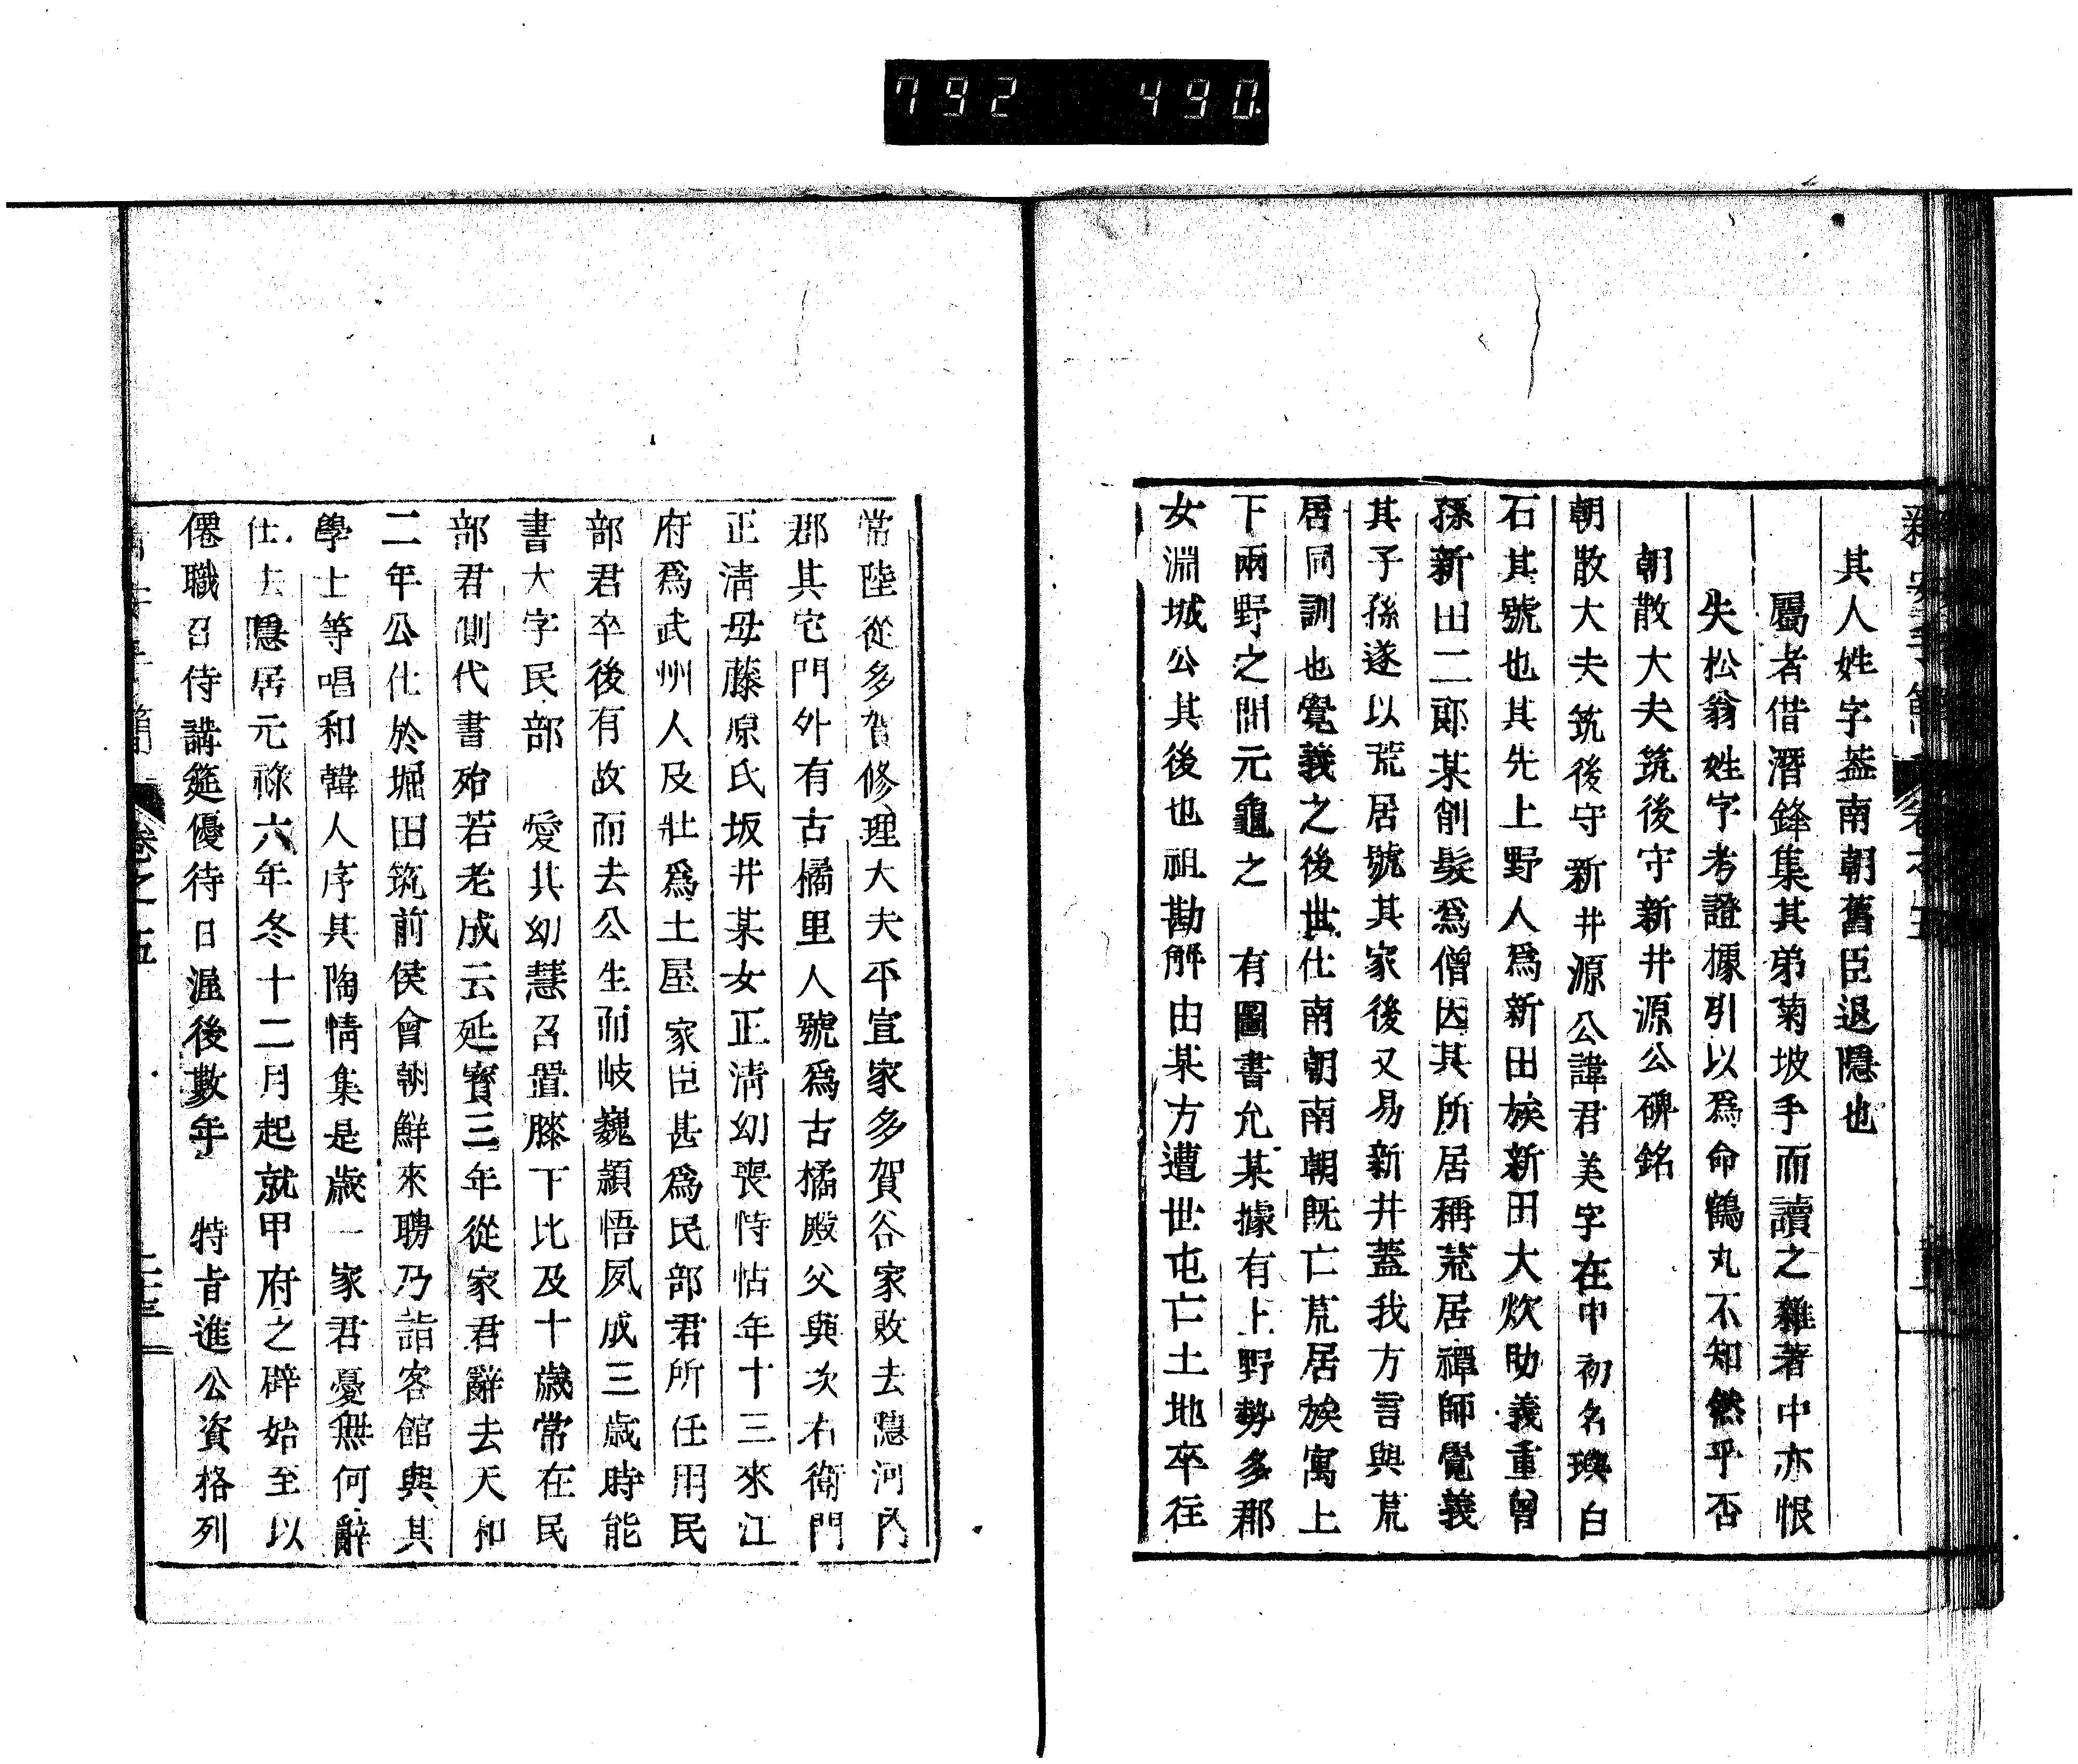 792 490
其人姓字蓋南朝舊臣退隱也
屬者借潛鋒集其弟菊坡手而讀之雜著中亦恨
失松翁姓字考證據引以爲命鶴丸不知然乎否
朝散大夫筑後守新井源公碑銘
朝散大夫筑後守新井源公諱君美字在中初名璵白
石其號也其先上野人爲新田族新田大炊助義重曾
孫新田二郎某削髮爲僧因其所居稱荒居禪師覺義
其子孫遂以荒居號其家後又易新井蓋我方言與荒
居同訓也覺義之後世仕南朝南朝既亡荒居族寓上
下兩野之間元龜之 有圖書允某據有上野勢多郡
女淵城公其後也祖勘解由某方遭世屯亡土地卒徃
常陸從多賀修理大夫平宣家多賀谷家敗去隱河內
郡其宅門外有古橘里人號爲古橘殿父與次右衛門
正淸母藤原氏坂井某女正淸幼喪恃怙年十三來江
府爲武州人及壯爲土屋家臣甚爲民部君所任用民
部君卒後有故而去公生而岐嶷穎悟夙成三歲時能
書大字民部 愛其幼慧召置膝下比及十歲常在民
部君側代書殆若老成云延寶三年從家君辭去天和
二年公仕於堀田筑前侯會朝鮮來聘乃詣客館與其
學士等唱和韓人序其陶情集是歲一家君憂無何辭
仕去隱居元祿六年冬十二月起就甲府之辟始至以
僊職召侍講筵優待日渥後數年 特旨進公資格列
卷之五